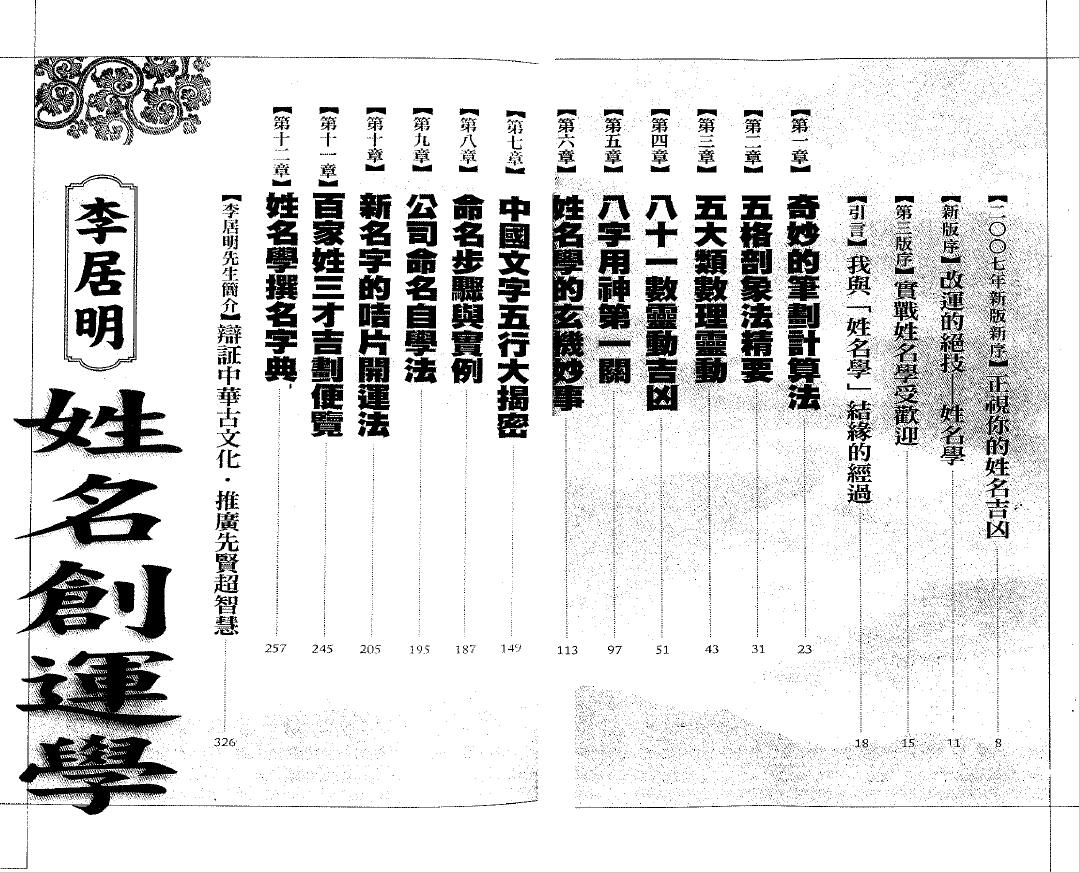 【二〇〇七年新版新序】正視你的姓名吉凶 8
【新版序】改運的絕技——姓名學 11
【第三版序】實戰姓名學受歡迎 15
【引言】我與「姓名學」結緣的經過 18
【第一章】奇妙的筆劃計算法 23
【第二章】五格剖象法精要 31
【第三章】五大類數理靈動 43
【第四章】八十一數靈動吉凶 51
【第五章】八字用神第一關 97
【第六章】姓名學的玄機妙事 113
【第七章】中國文字五行大揭密 149
【第八章】命名步驟與實例 187
【第九章】公司命名自學法 195
【第十章】新名字的咭片開運法 205
【第十一章】百家姓三才吉劃便覽 245
【第十二章】姓名學撰名字典 257
【李居明先生簡介】辯証中華古文化・推廣先賢超智慧 326
李居明
姓名創運學